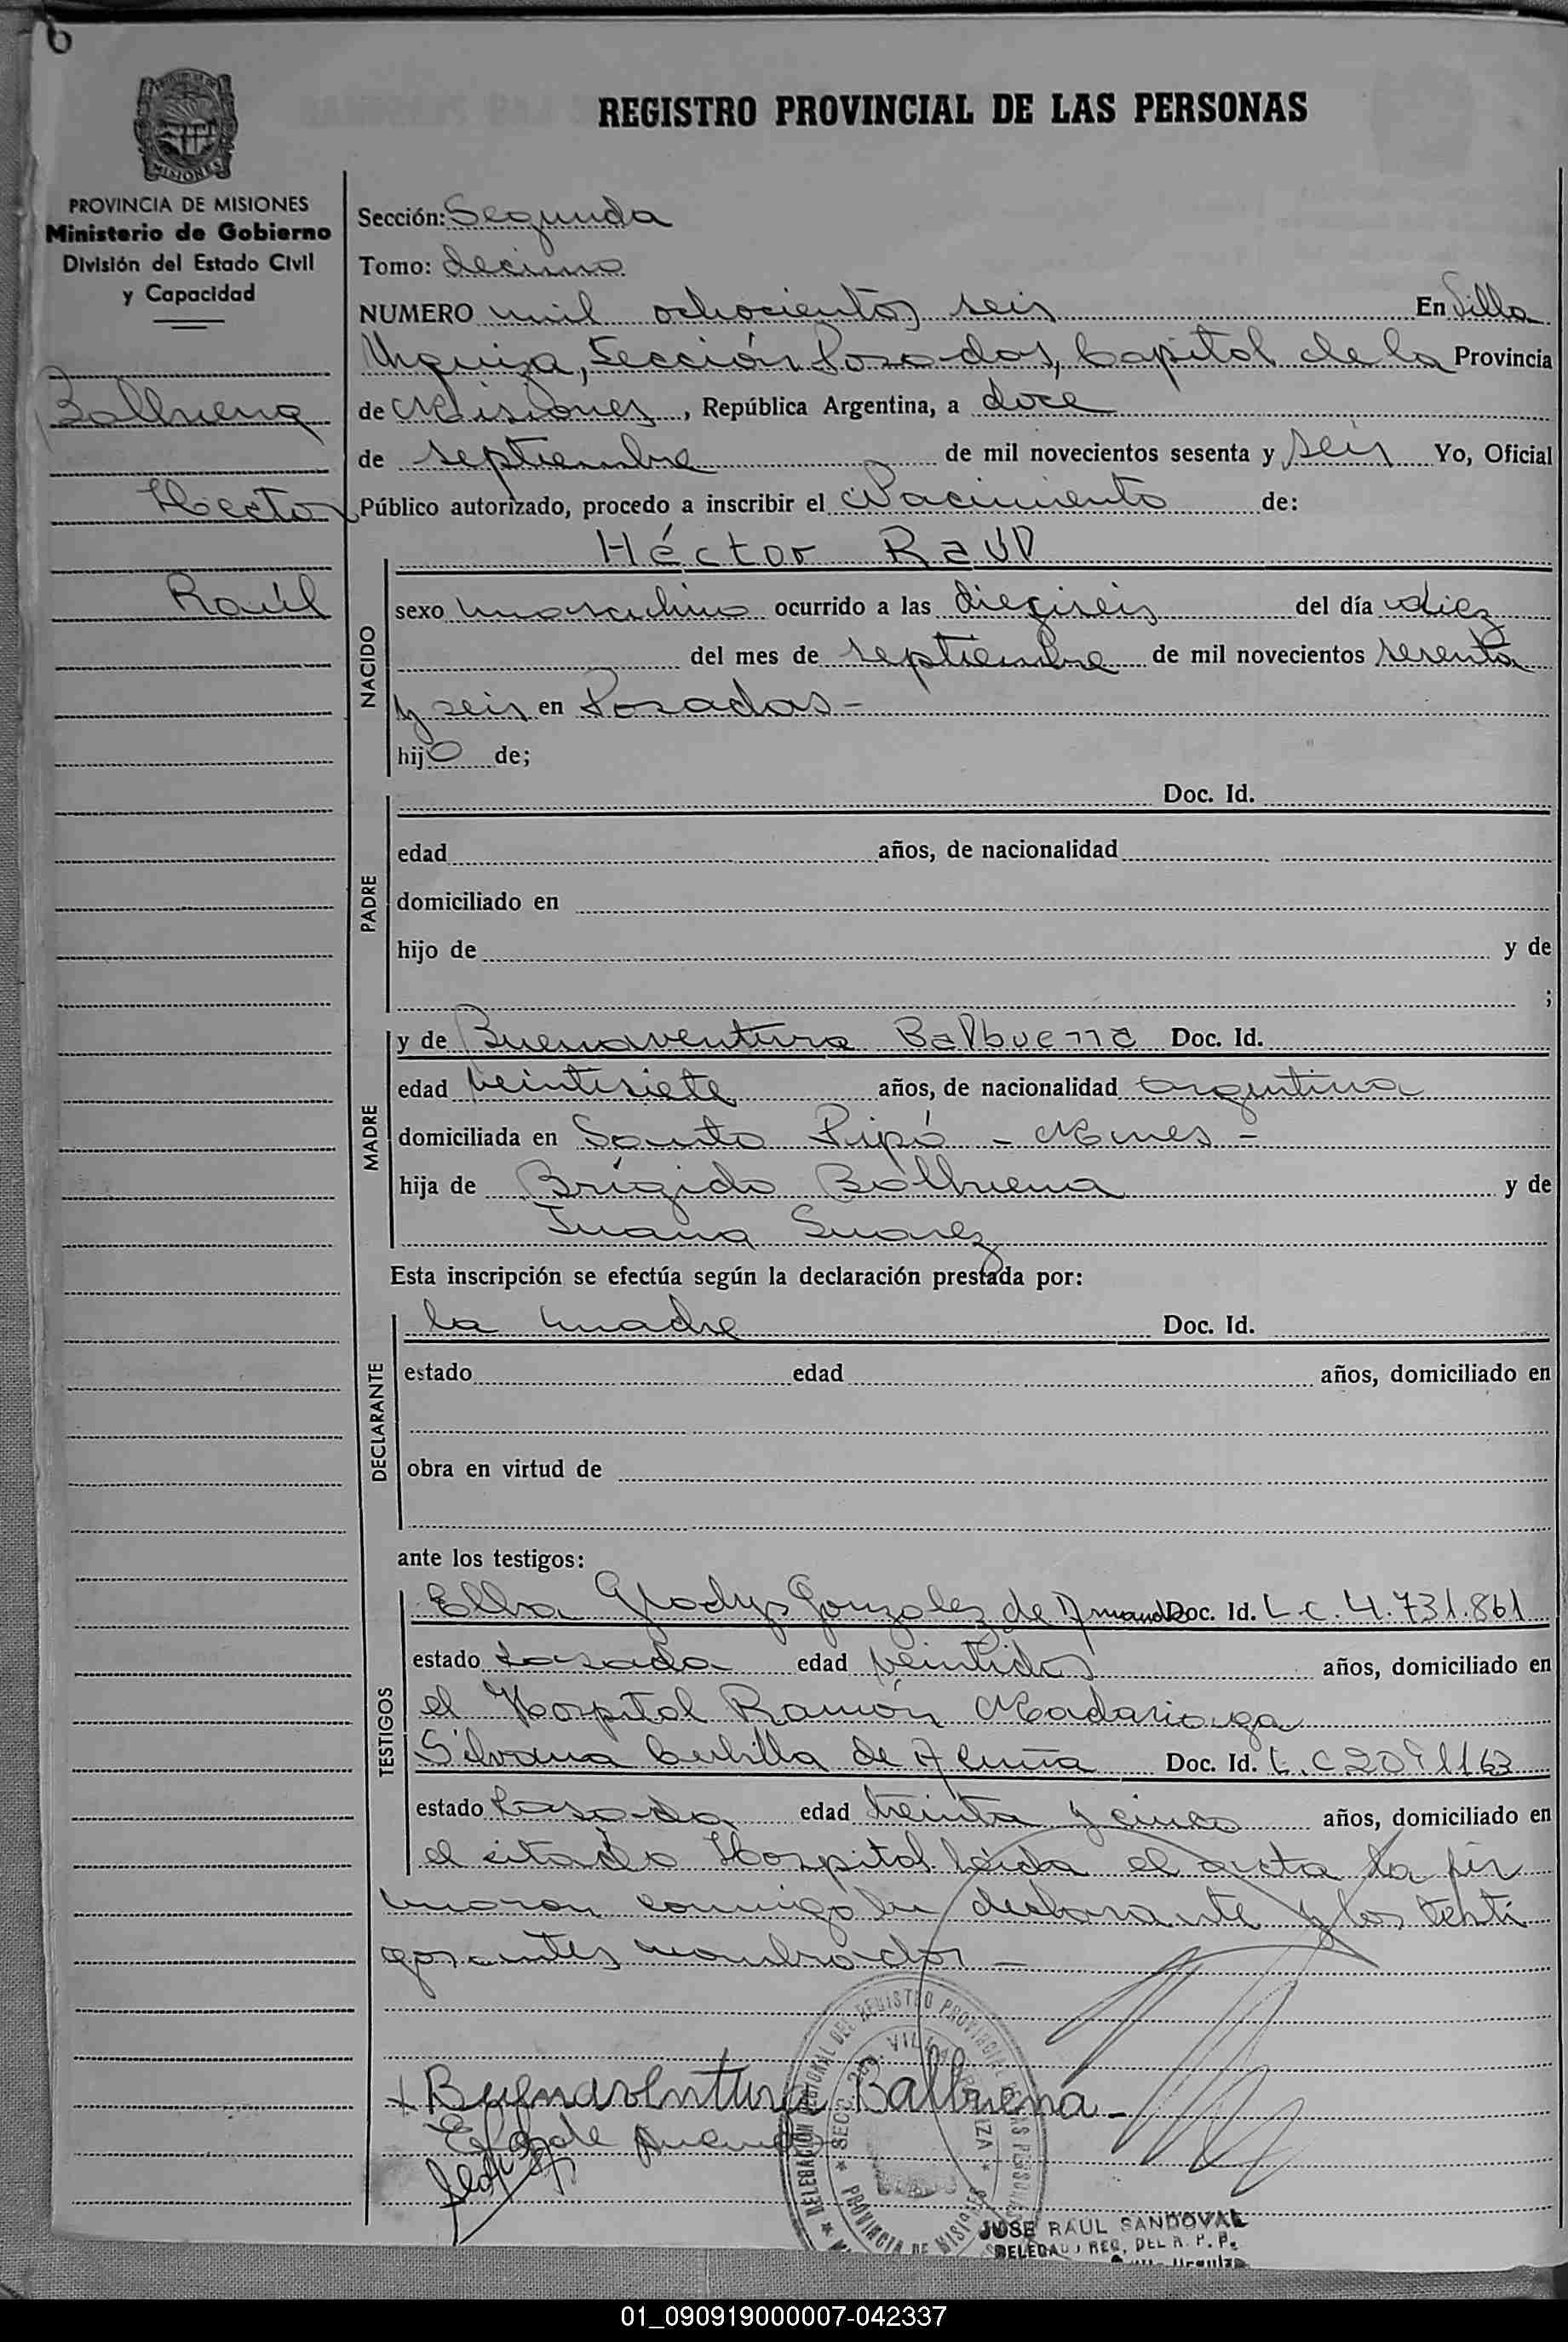 6
MISIONES
PROVINCIA DE MISIONES
Ministerio de Gobierno
División del Estado Civil
y Capacidad
Balbuena
Hector
Raúl
REGISTRO PROVINCIAL DE LAS PERSONAS
Sección: Segunda
Tomo: decimo
NUMERO mil ochocientos seis En Villa
Urquiza, Sección Posadas, Capital de la Provincia
de Misiones, República Argentina, a doce
de septiembre de mil novecientos sesenta y seis Yo, Oficial
Público autorizado, procedo a inscribir el Nacimiento de:
NACIDO
Héctor Raúl
sexo masculino ocurrido a las dieciseis del día diez
del mes de septiembre de mil novecientos sesenta
y seis en Posadas -
hijo de;
PADRE
Doc. Id.
edad años, de nacionalidad
domiciliado en
hijo de y de
;
MADRE
y de Buenaventura Balbuena Doc. Id.
edad veintisiete años, de nacionalidad argentina
domiciliada en Santo Pipó - Mnes -
hija de Brígido Balbuena y de
Juana Suarez
Esta inscripción se efectúa según la declaración prestada por:
DECLARANTE
la madre Doc. Id.
estado edad años, domiciliado en
obra en virtud de
ante los testigos:
TESTIGOS
Elba Gladys Gonzalez de Doc. Id. L.C. 4.731.861
estado Casada edad veintidos años, domiciliado en
el Hospital Ramón Madariaga
Silvana de Acuña Doc. Id. L.C
estado Casada edad treinta y cinco años, domiciliado en
el citado Hospital leída el acta la fir
maron conmigo la declarante y los testi
gos antes nombrados -
Buenaventura Balbuena -
DELEGACIÓN REGIONAL DEL REGISTRO PROVINCIAL DE LAS PERSONAS
SECC. 2da. VILLA URQUIZA
PROVINCIA DE MISIONES
JOSE RAUL SANDOVAL
DELEGADO REG. DEL R. P. P.
Urquiza
01_090919000007-042337